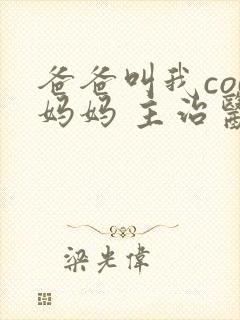 爸爸叫我co
妈妈 主治醫
梁光偉